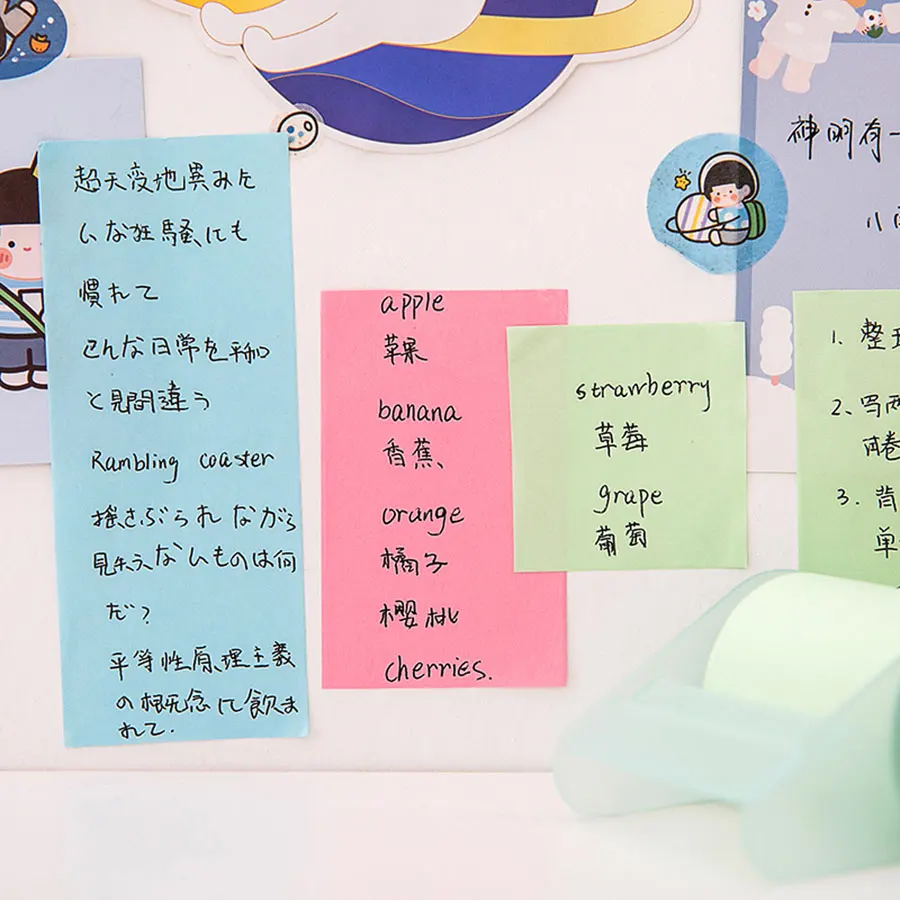 超天変地異みた
いな狂騒にも
慣れて
こんな日常を平和
と見間違う
Rambling coaster
揺さぶられながら
見失うないものは何
だ?
平等性原理主義
の概念に飲ま
れて.
apple
苹果
banana
香蕉
orange
橘子
樱桃
cherries.
strawberry
草莓
grape
葡萄
神明有一
1. 整
2、写两
3. 背
单